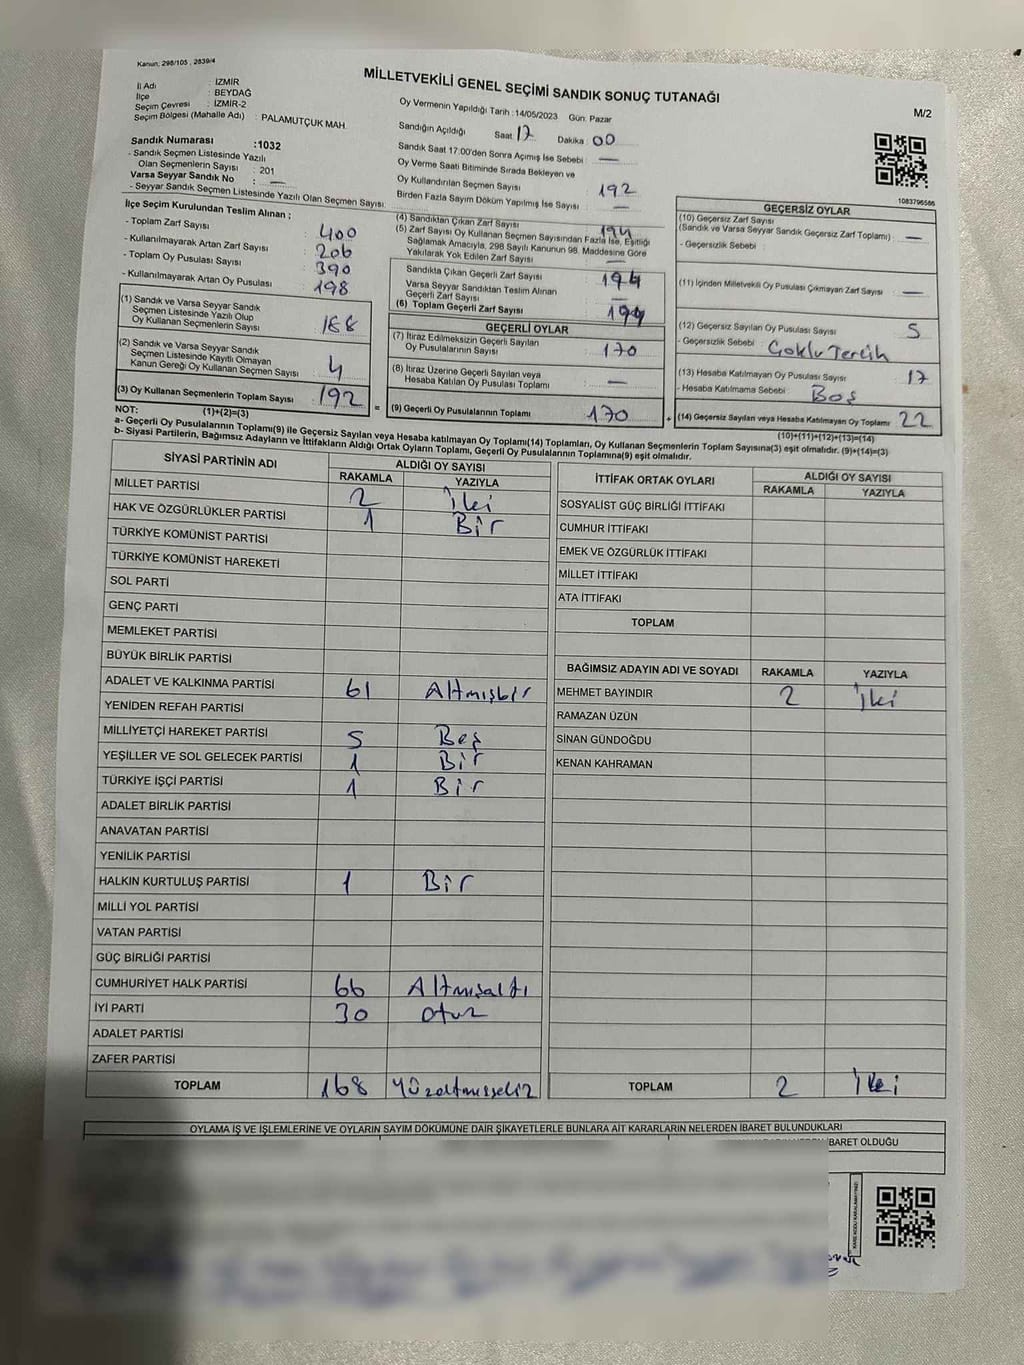 Kanun: 298/105 , 2839/4
MİLLETVEKİLİ GENEL SEÇİMİ SANDIK SONUÇ TUTANAĞI
M/2
İl Adı : İZMİR
İlçe : BEYDAĞ
Seçim Çevresi : İZMİR-2
Seçim Bölgesi (Mahalle Adı) : PALAMUTÇUK MAH.
Oy Vermenin Yapıldığı Tarih :14/05/2023 Gün: Pazar
Sandığın Açıldığı Saat 17 Dakika 00
Sandık Saat 17:00'den Sonra Açımış İse Sebebi : —
Oy Verme Saati Bitiminde Sırada Bekleyen ve
Oy Kullandırılan Seçmen Sayısı 192
Birden Fazla Sayım Döküm Yapılmış İse Sayısı —
Sandık Numarası :1032
- Sandık Seçmen Listesinde Yazılı
Olan Seçmenlerin Sayısı : 201
Varsa Seyyar Sandık No : —
- Seyyar Sandık Seçmen Listesinde Yazılı Olan Seçmen Sayısı:
1083796586
İlçe Seçim Kurulundan Teslim Alınan ;
- Toplam Zarf Sayısı 400
- Kullanılmayarak Artan Zarf Sayısı 206
- Toplam Oy Pusulası Sayısı 390
- Kullanılmayarak Artan Oy Pusulası 198
(1) Sandık ve Varsa Seyyar Sandık
Seçmen Listesinde Yazılı Olup
Oy Kullanan Seçmenlerin Sayısı 188
(2) Sandık ve Varsa Seyyar Sandık
Seçmen Listesinde Kayıtlı Olmayan
Kanun Gereği Oy Kullanan Seçmen Sayısı 4
(3) Oy Kullanan Seçmenlerin Toplam Sayısı 192
(4) Sandıktan Çıkan Zarf Sayısı 194
(5) Zarf Sayısı Oy Kullanan Seçmen Sayısından Fazla İse, Eşitliği
Sağlamak Amacıyla, 298 Sayılı Kanunun 98. Maddesine Göre
Yakılarak Yok Edilen Zarf Sayısı —
Sandıkta Çıkan Geçerli Zarf Sayısı 194
Varsa Seyyar Sandıktan Teslim Alınan
Geçerli Zarf Sayısı —
(6) Toplam Geçerli Zarf Sayısı 194
GEÇERLİ OYLAR
(7) İtiraz Edilmeksizin Geçerli Sayılan
Oy Pusulalarının Sayısı 170
(8) İtiraz Üzerine Geçerli Sayılan veya
Hesaba Katılan Oy Pusulası Toplamı —
= (9) Geçerli Oy Pusulalarının Toplamı 170
GEÇERSİZ OYLAR
(10) Geçersiz Zarf Sayısı
(Sandık ve Varsa Seyyar Sandık Geçersiz Zarf Toplamı) —
- Geçersizlik Sebebi :
(11) İçinden Milletvekili Oy Pusulası Çıkmayan Zarf Sayısı —
(12) Geçersiz Sayılan Oy Pusulası Sayısı 5
- Geçersizlik Sebebi : Çoklu Tercih
(13) Hesaba Katılmayan Oy Pusulası Sayısı 17
- Hesaba Katılmama Sebebi : Boş
+ (14) Geçersiz Sayılan veya Hesaba Katılmayan Oy Toplamı 22
NOT: (1)+(2)=(3)
(10)+(11)+(12)+(13)=(14)
a- Geçerli Oy Pusulalarının Toplamı(9) ile Geçersiz Sayılan veya Hesaba katılmayan Oy Toplamı(14) Toplamları, Oy Kullanan Seçmenlerin Toplam Sayısına(3) eşit olmalıdır. (9)+(14)=(3)
b- Siyasi Partilerin, Bağımsız Adayların ve İttifakların Aldığı Ortak Oyların Toplamı, Geçerli Oy Pusulalarının Toplamına(9) eşit olmalıdır.
SİYASİ PARTİNİN ADI ALDIĞI OY SAYISI
RAKAMLA YAZIYLA
MİLLET PARTİSİ 2 İki
HAK VE ÖZGÜRLÜKLER PARTİSİ 1 Bir
TÜRKİYE KOMÜNİST PARTİSİ
TÜRKİYE KOMÜNİST HAREKETİ
SOL PARTİ
GENÇ PARTİ
MEMLEKET PARTİSİ
BÜYÜK BİRLİK PARTİSİ
ADALET VE KALKINMA PARTİSİ 61 Altmışbir
YENİDEN REFAH PARTİSİ
MİLLİYETÇİ HAREKET PARTİSİ 5 Beş
YEŞİLLER VE SOL GELECEK PARTİSİ 1 Bir
TÜRKİYE İŞÇİ PARTİSİ 1 Bir
ADALET BİRLİK PARTİSİ
ANAVATAN PARTİSİ
YENİLİK PARTİSİ
HALKIN KURTULUŞ PARTİSİ 1 Bir
MİLLİ YOL PARTİSİ
VATAN PARTİSİ
GÜÇ BİRLİĞİ PARTİSİ
CUMHURİYET HALK PARTİSİ 66 Altmışaltı
İYİ PARTİ 30 otuz
ADALET PARTİSİ
ZAFER PARTİSİ
TOPLAM 168 Yüzaltmışsekiz
İTTİFAK ORTAK OYLARI ALDIĞI OY SAYISI
RAKAMLA YAZIYLA
SOSYALİST GÜÇ BİRLİĞİ İTTİFAKI
CUMHUR İTTİFAKI
EMEK VE ÖZGÜRLÜK İTTİFAKI
MİLLET İTTİFAKI
ATA İTTİFAKI
TOPLAM
BAĞIMSIZ ADAYIN ADI VE SOYADI RAKAMLA YAZIYLA
MEHMET BAYINDIR 2 İki
RAMAZAN ÜZÜN
SİNAN GÜNDOĞDU
KENAN KAHRAMAN
TOPLAM 2 İki
OYLAMA İŞ VE İŞLEMLERİNE VE OYLARIN SAYIM DÖKÜMÜNE DAİR ŞİKAYETLERLE BUNLARA AİT KARARLARIN NELERDEN İBARET BULUNDUKLARI
İBARET OLDUĞU
KARE KODU KARALAMAYINIZ!